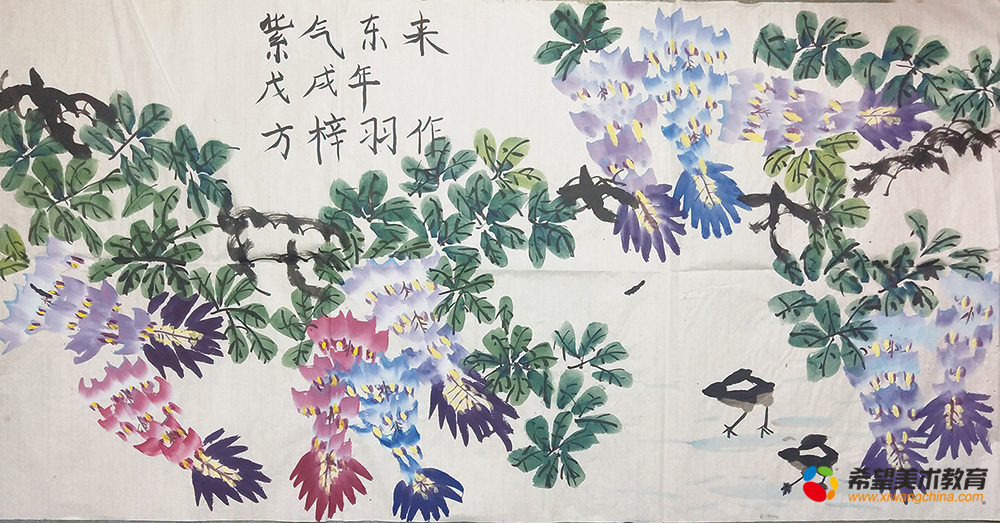 紫气东来
戊戌年
方梓羽作
希望美术教育
www.xiwangchina.com